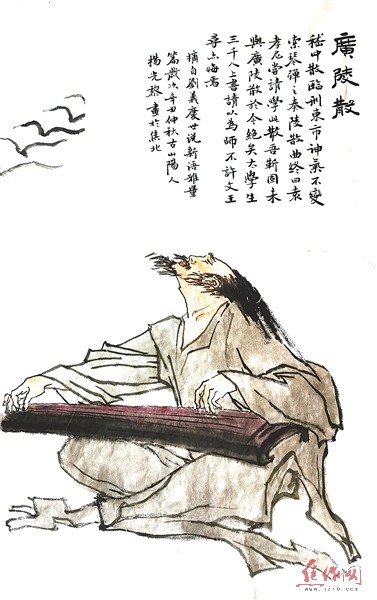 廣陵散
嵇中散臨刑東市神氣不變
索琴彈之奏陵散曲終曰袁
孝尼嘗請學此散吾靳固未
與廣陵散於今絕矣大學生
三千人上書請以為師不許文王
尋亦悔焉
摘自劉義慶世說新語雅量
篇歲次辛丑仲秋古山陽人
楊先黎畫於焦北
焦作网
www.jzrb.com